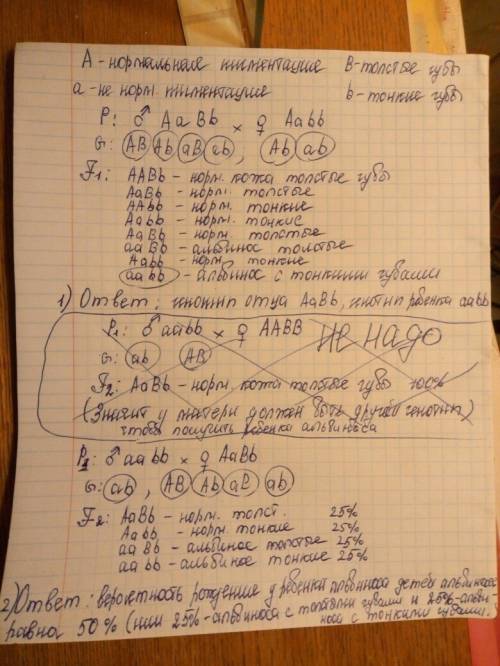 А - нормальная пигментация В - толстые губы
а - не норм. пигментация b - тонкие губы
P: ♂ AaBb × ♀ Aabb
G: AB Ab aB ab , Ab ab
F1: AABb - норм. кожа толстые губы
AaBb - норм. толстые
AAbb - норм. тонкие
Aabb - норм. тонкие
AaBb - норм. толстые
aaBb - альбинос толстые
Aabb - норм. тонкие
aabb - альбинос с тонкими губами
1) Ответ: генотип отца AaBb, генотип ребенка aabb
P1: ♂ aabb × ♀ AABB Не надо
G: ab AB
F2: AaBb - норм. кожа толстые губы 100%
(Значит у матери должен быть другой генотип)
чтобы получить ребенка альбиноса
P1: ♂ aabb × ♀ AaBb
G: ab , AB Ab aB ab
F2: AaBb - норм. толст. 25%
Aabb - норм. тонкие 25%
aaBb - альбинос толстые 25%
aabb - альбинос тонкие 25%
2) Ответ: вероятность рождение у ребенка альбиноса детей альбиносов
равна 50% (или 25% - альбиноса с толстыми губами и 25% - альби-
носа с тонкими губами.